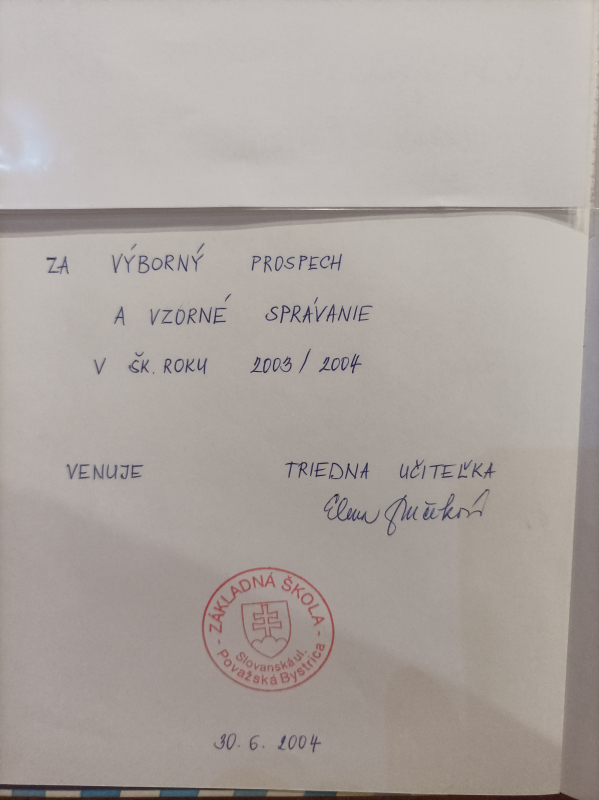 ZA VÝBORNÝ PROSPECH
A VZORNÉ SPRÁVANIE
V ŠK. ROKU 2003/2004
VENUJE TRIEDNA UČITEĽKA
Elena
- ZÁKLADNÁ ŠKOLA -
Slovanská ul.
Považská Bystrica
30. 6. 2004